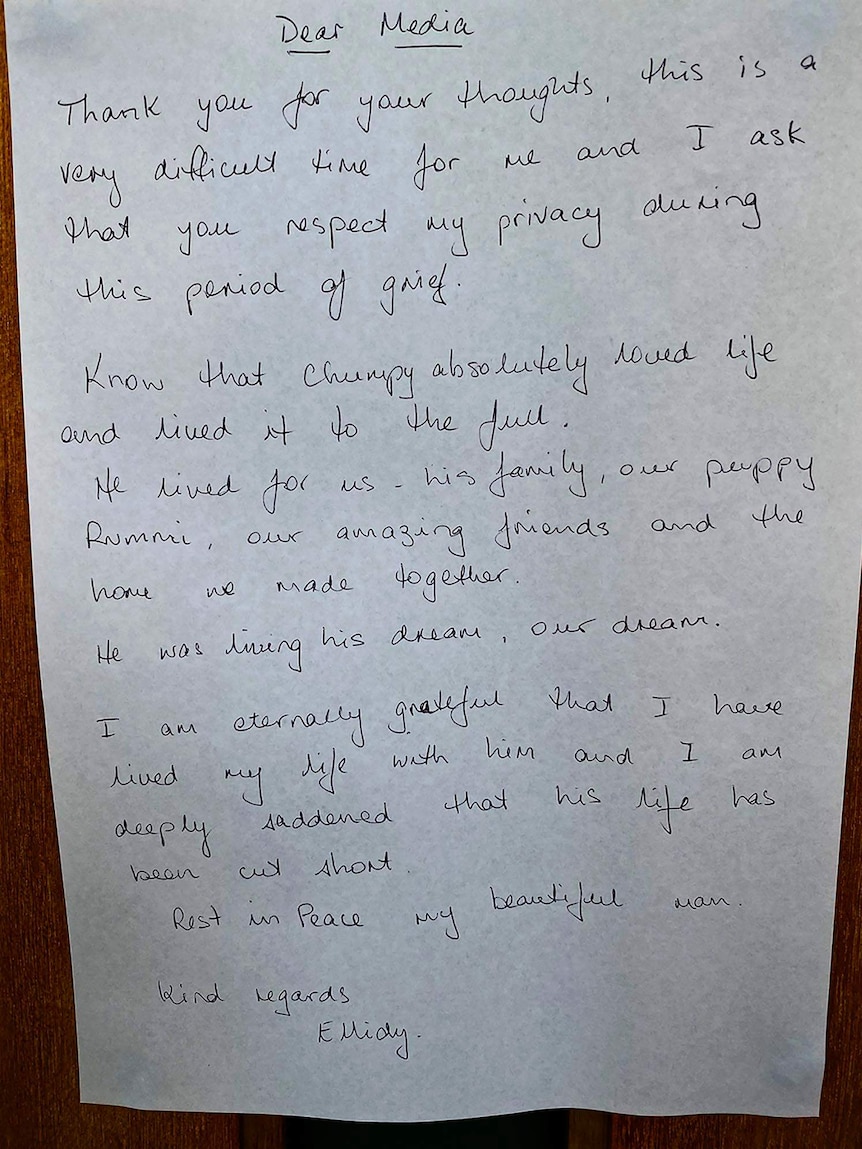 Dear Media
Thank you for your thoughts, this is a
very difficult time for me and I ask
that you respect my privacy during
this period of grief.
Know that Chumpy absolutely loved life
and lived it to the full.
He lived for us - his family, our puppy
Rummi, our amazing friends and the
home we made together.
He was living his dream, our dream.
I am eternally grateful that I have
lived my life with him and I am
deeply saddened that his life has
been cut short.
Rest in Peace my beautiful man.
Kind regards
Ellidy.